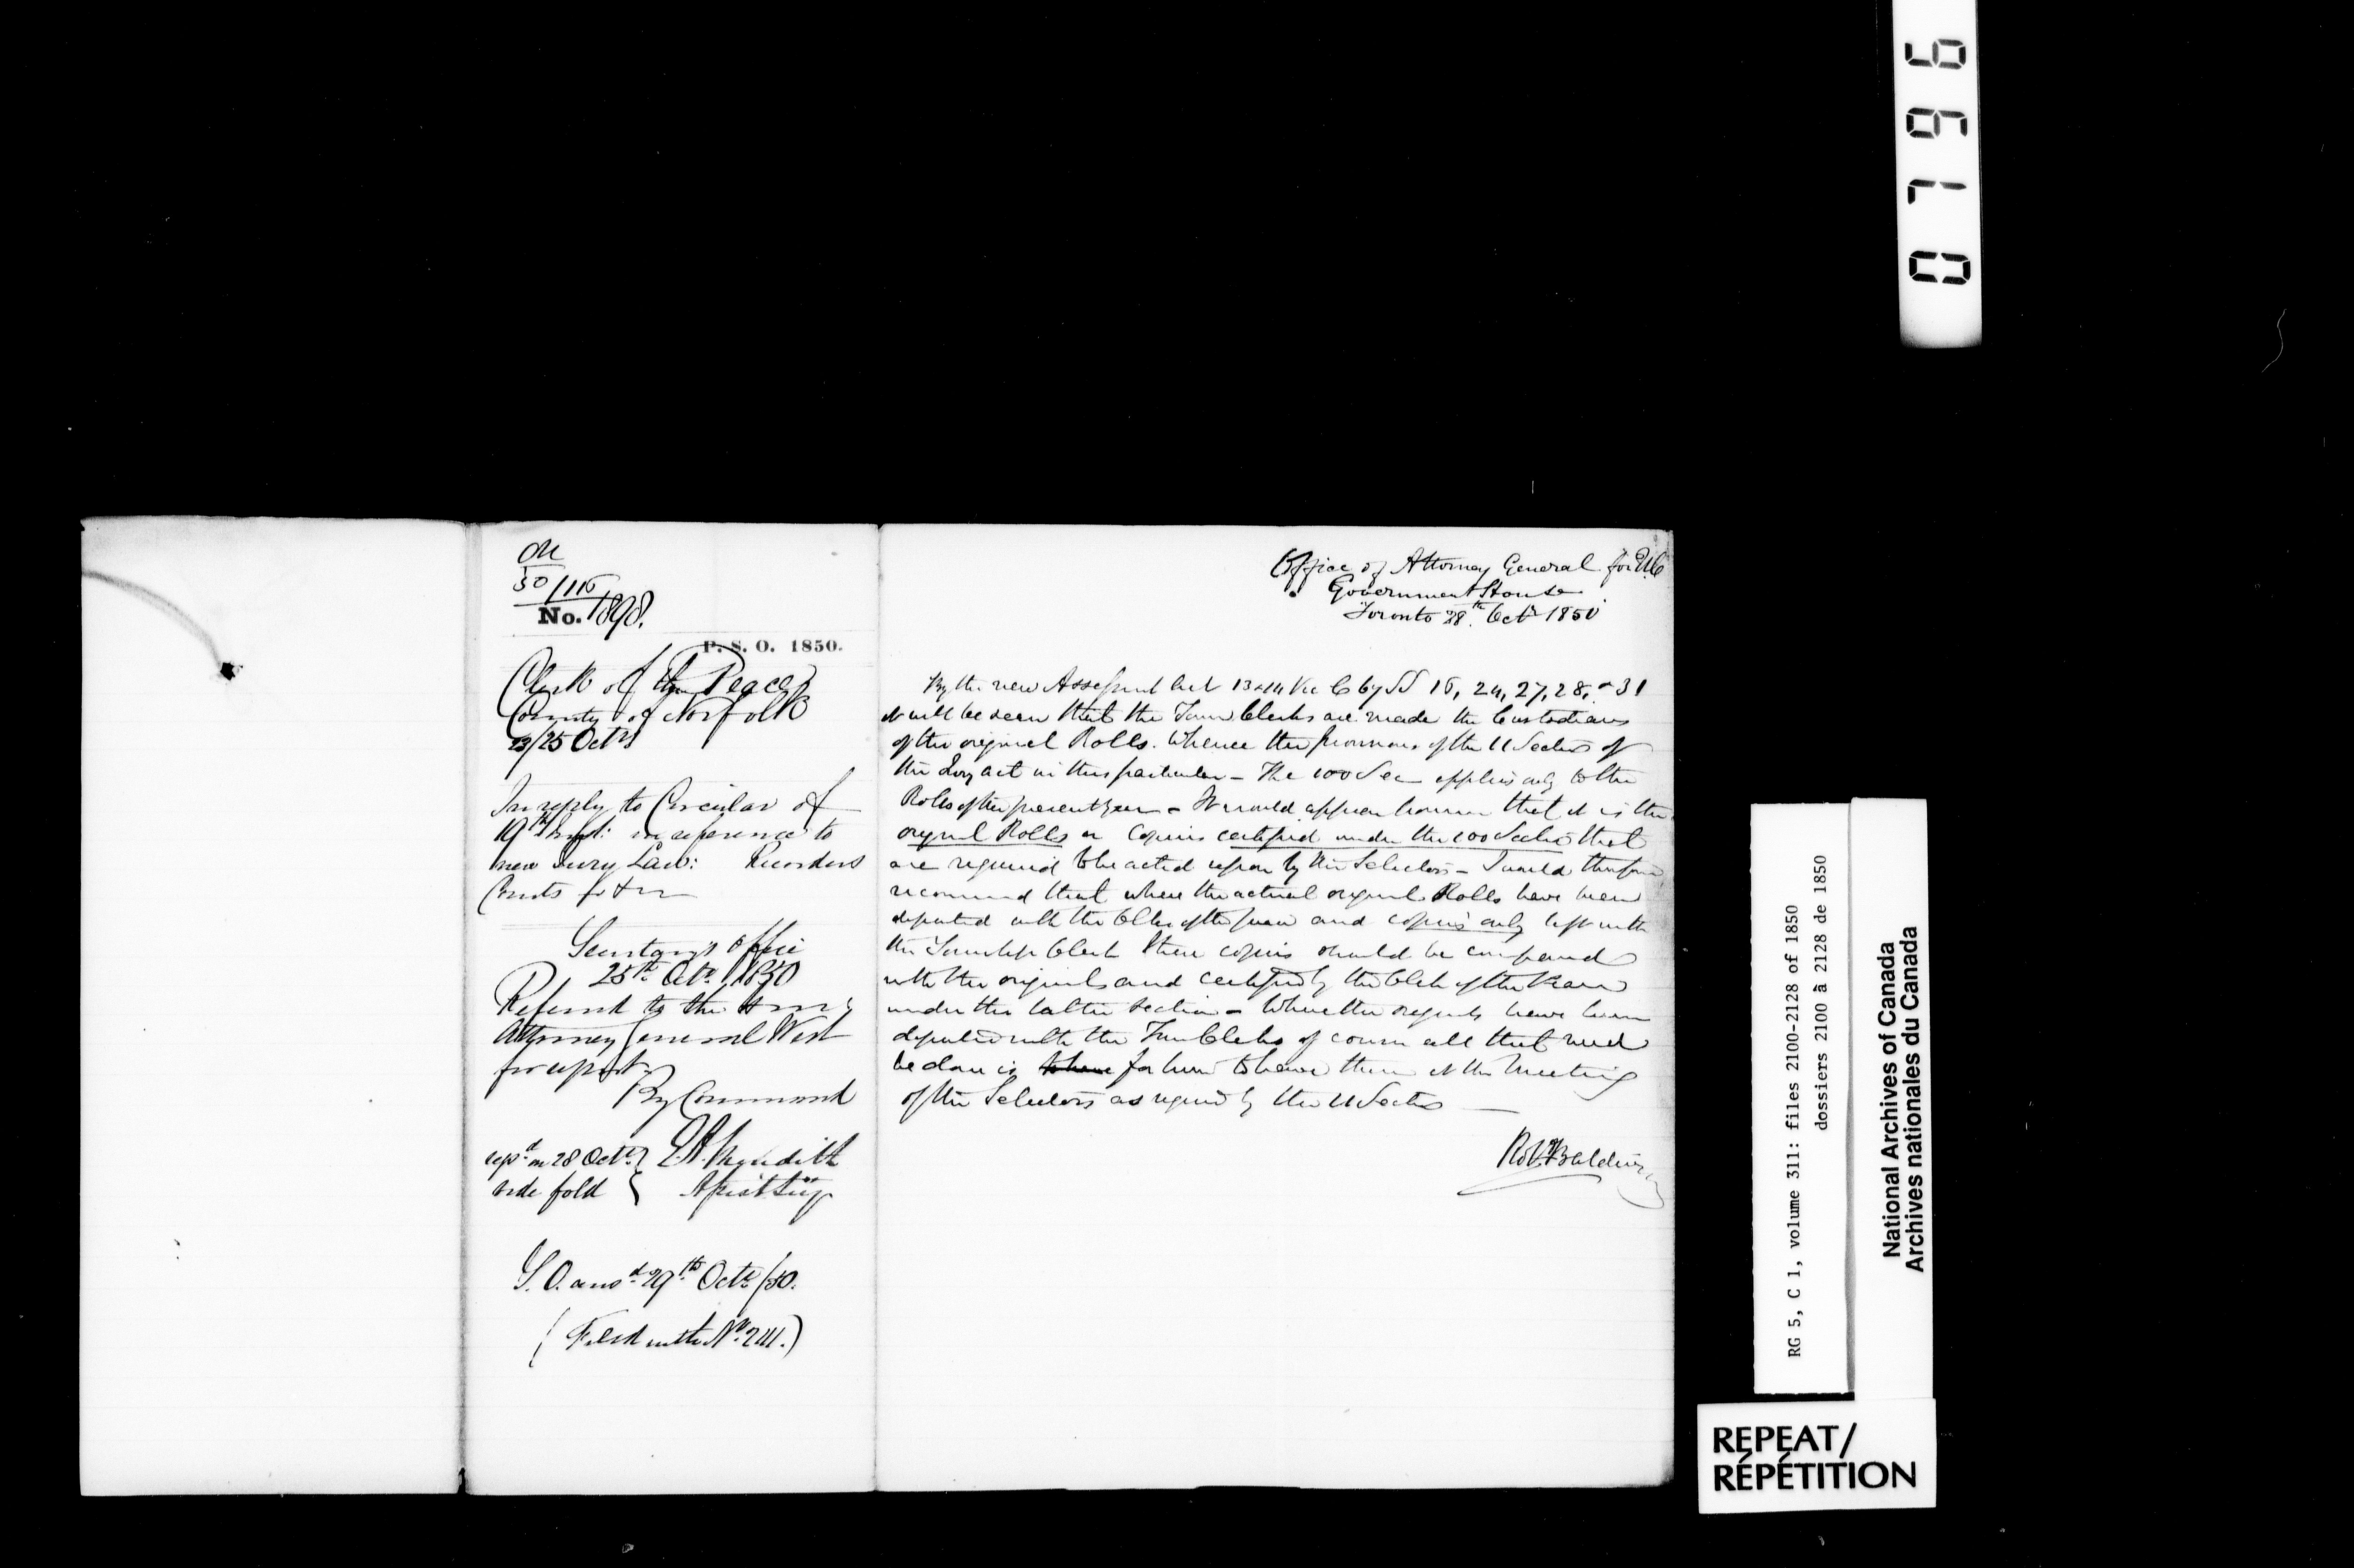 50/115
No. 1898.
P. S. O. 1850.
Clerk of the Peace
County of Norfolk
23/25 Octr
In reply to Circular of
19th Inst: in reference to
new Jury Law: Recorders
Courts
Secretary's Office
25th Octr 1850
Referred to the Hon
Attorney General West
for report
By Command
repd on 28 Octr } E.A. Meredith
vide fold { Assist Secy
S.O. ansd 29th Octr /50.
(Filed with No. 2111.)
Office of Attorney General for U.C
Government House
Toronto 28th Octr 1850
By the new Assessment Act 13 & 14 Vic C 67 SS 16, 24, 27, 28, & 31
it will be seen that the Town Clerks are made the Custodians
of the original Rolls. Whence the provisions of the 11 Section of
the Jury act in this particular — The 100 Sec applies only to the
Rolls of the present year — It would appear however that it is the
original Rolls or Copies certified under the 100 Section that
are required to be acted upon by the Selectors — I would therefore
recommend that where the actual original Rolls have been
deposited with the Clks of the Peace and copies only left with
the Township Clerk these copies should be compared
with the originals and certified by the Clerk of the Peace
under the latter section — Where the originals have been
deposited with the Town Clerks of course all that need
be done is to have for him to have them at the Meeting
of the Selectors as required by the 11 Section —
Robt Baldwin
0796
RG 5, C 1, volume 311: files 2100-2128 of 1850
dossiers 2100 à 2128 de 1850
National Archives of Canada
Archives nationales du Canada
REPEAT/
RÉPÉTITION